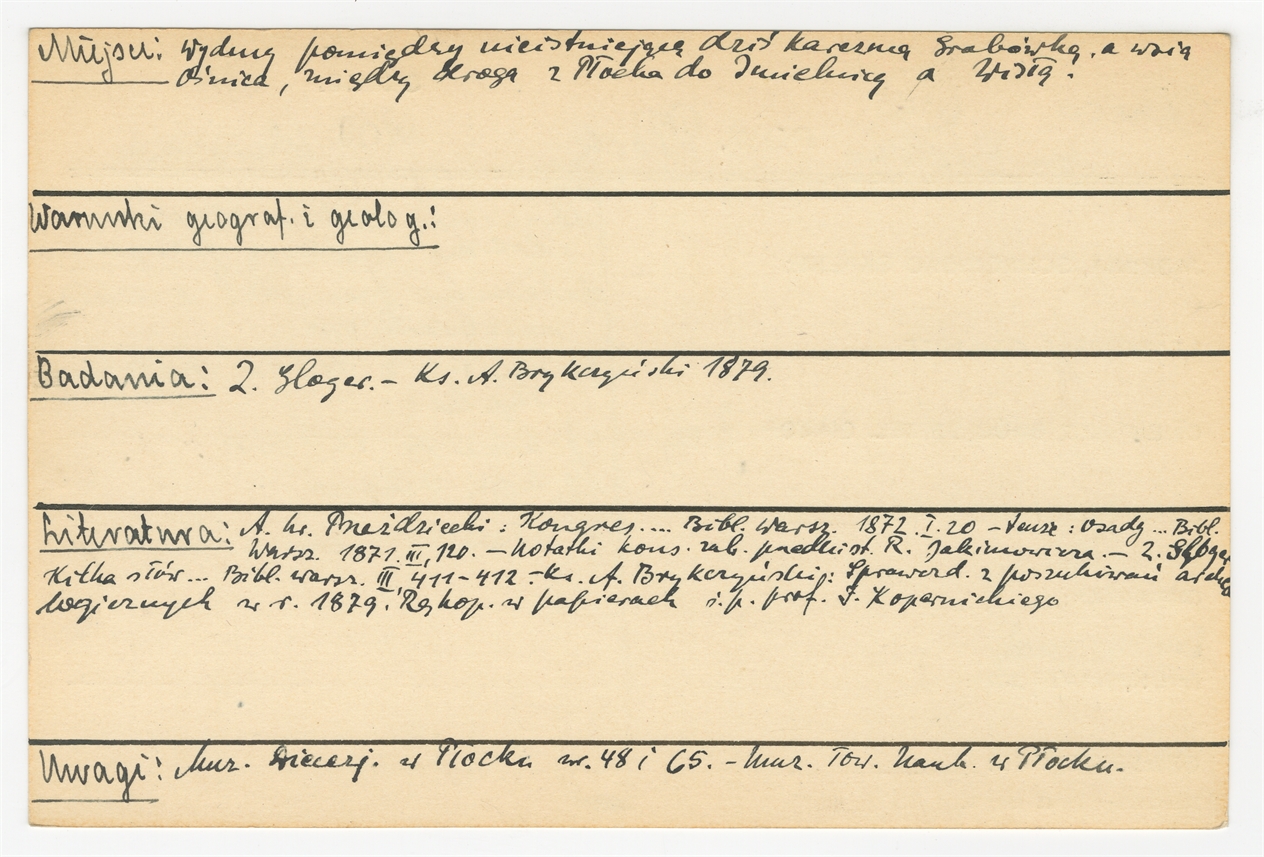 Miejsce: Wydmy pomiędzy nieistniejącą dziś karczmą Grabówką, a wsią
Ośnica, między drogą z Płocka do Imielnicy a Wisłą.
Warunki geograf. i geolog.:
Badania: Z. Gloger. - Ks. A. Brykczyński 1879.
Literatura: A. hr. Przeździecki: Kongres.... Bibl. Warsz. 1872. I. 20 - tenże: Osady... Bibl.
Warsz. 1871. III, 120. - Notatki kons. zab. przedhist. R. Jakimowicza. - Z. Gloger
Kilka słów... Bibl. warsz. III 411-412. - Ks. A. Brykczyński: Sprawozd. z poszukiwań archeo
logicznych w r. 1879. Rękop. w papierach ś.p. prof. I. Kopernickiego
Uwagi: Muz. Diecezj. w Płocku nr. 48 i 65. - Muz. Tow. Nauk. w Płocku.